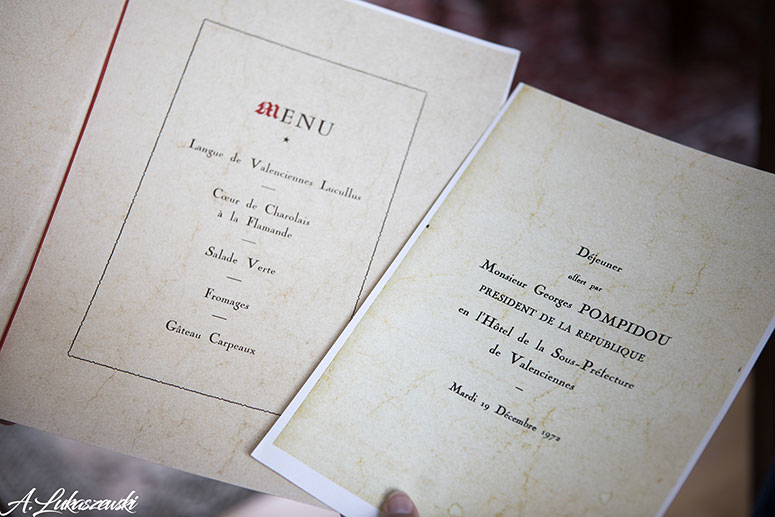 MENU
Langue de Valenciennes Lucullus
Cœur de Charolais
à la Flamande
Salade Verte
Fromages
Gâteau Carpeaux
Déjeuner
offert par
Monsieur Georges POMPIDOU
PRESIDENT DE LA REPUBLIQUE
en l'Hôtel de la Sous-Préfecture
de Valenciennes
Mardi 19 Décembre 1972
A. Lukaszewski